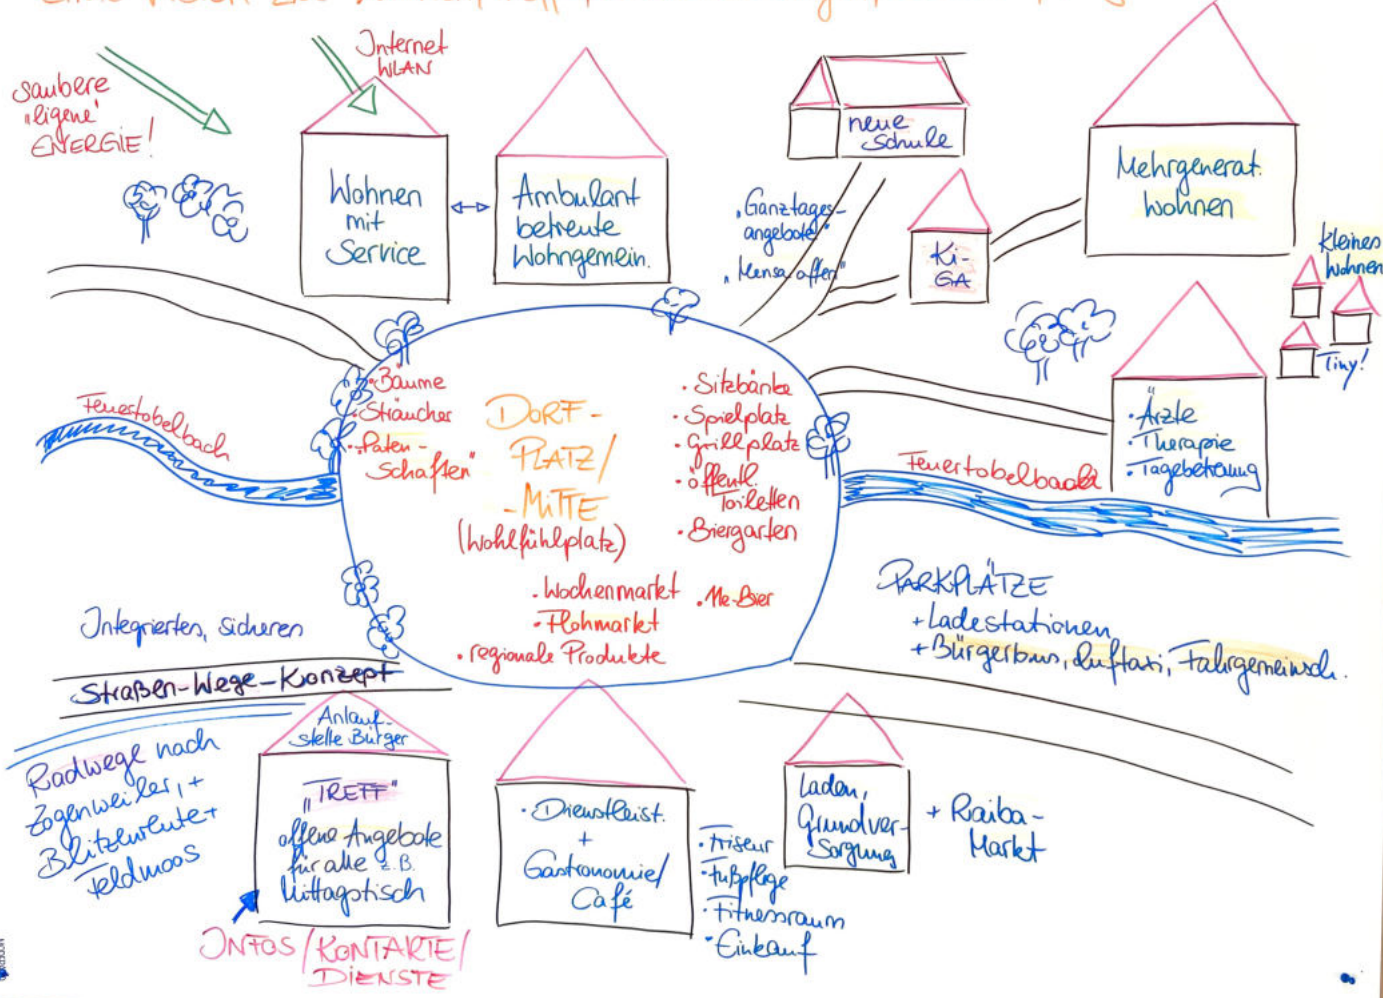 Internet
WLAN
saubere
"eigene"
ENERGIE!
Wohnen
mit
Service
Ambulant
betreute
Wohngemein.
neue
Schule
"Ganztages-
angebote"
"Mensa offen"
Ki-
GA
Mehrgenerat.
wohnen
kleines
Wohnen
Tiny!
• Ärzte
• Therapie
• Tagebetreuung
Feuertobelbach
Feuertobelbach
• Bäume
• Sträucher
• "Paten-
schaften"
DORF-
PLATZ/
-MITTE
(Wohlfühlplatz)
• Sitzbänke
• Spielplatz
• Grillplatz
• öffentl.
Toiletten
• Biergarten
• Wochenmarkt
• Flohmarkt
• regionale Produkte
PARKPLÄTZE
+ Ladestationen
+ Bürgerbus, Lufttaxi, Fahrgemeinsch.
Integrierten, sicheren
Straßen-Wege-Konzept
Radwege nach
Zogenweiler, +
Blitzenreute +
Feldmoos
Anlauf-
stelle Bürger
"TREFF"
offene Angebote
für alle z.B.
Mittagstisch
INFOS/KONTAKTE/
DIENSTE
• Dienstleist.
+
Gastronomie/
Café
• Friseur
• Fußpflege
• Fitnessraum
• Einkauf
Laden,
Grundver-
sorgung
+ Raiba-
Markt